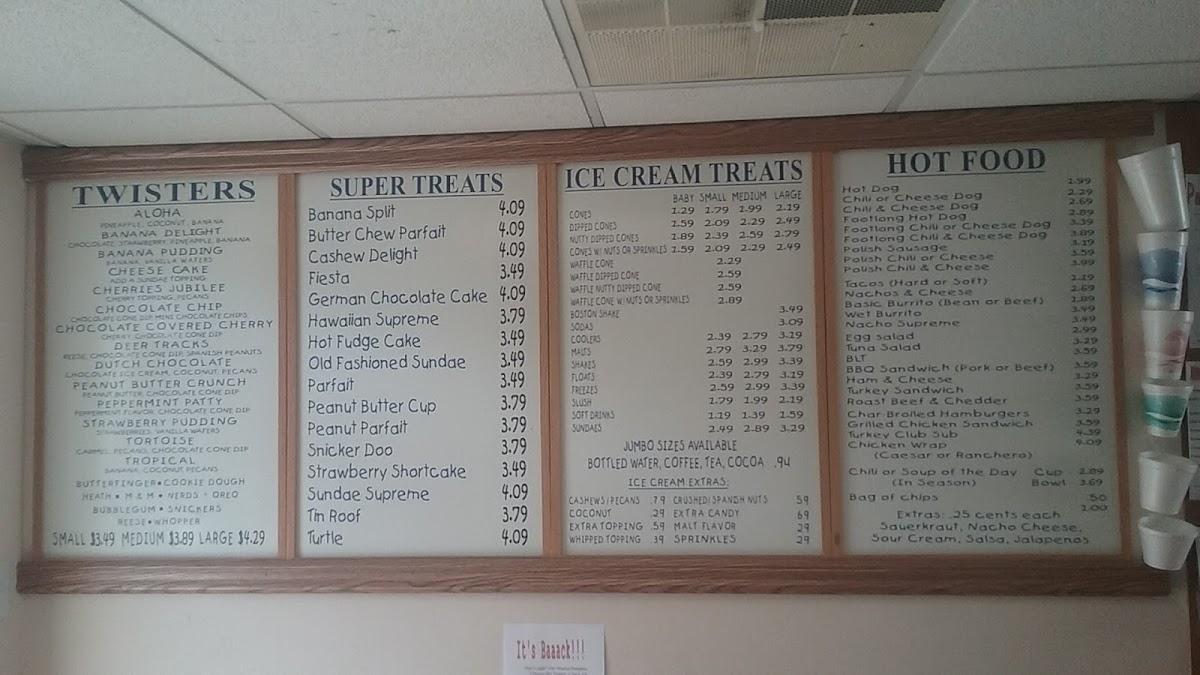 TWISTERS
ALOHA
PINEAPPLE, COCONUT, BANANA
BANANA DELIGHT
CHOCOLATE, STRAWBERRY, PINEAPPLE, BANANA
BANANA PUDDING
BANANA, VANILLA WAFERS
CHEESE CAKE
ADD A SUNDAE TOPPING
CHERRIES JUBILEE
CHERRY TOPPING, PECANS
CHOCOLATE CHIP
CHOCOLATE CONE DIP, MINI CHOCOLATE CHIPS
CHOCOLATE COVERED CHERRY
CHERRY, CHOCOLATE CONE DIP
DEER TRACKS
REESE, CHOCOLATE CONE DIP, SPANISH PEANUTS
DUTCH CHOCOLATE
CHOCOLATE ICE CREAM, COCONUT, PECANS
PEANUT BUTTER CRUNCH
PEANUT BUTTER, CHOCOLATE CONE DIP
PEPPERMINT PATTY
PEPPERMINT FLAVOR, CHOCOLATE CONE DIP
STRAWBERRY PUDDING
STRAWBERRIES, VANILLA WAFERS
TORTOISE
CARMEL, PECANS, CHOCOLATE CONE DIP
TROPICAL
BANANA, COCONUT, PECANS
BUTTERFINGER • COOKIE DOUGH
HEATH • M & M • NERDS • OREO
BUBBLEGUM • SNICKERS
REESE • WHOPPER
SMALL $3.49 MEDIUM $3.89 LARGE $4.29
SUPER TREATS
Banana Split 4.09
Butter Chew Parfait 4.09
Cashew Delight 4.09
Fiesta 3.49
German Chocolate Cake 4.09
Hawaiian Supreme 3.79
Hot Fudge Cake 3.49
Old Fashioned Sundae 3.49
Parfait 3.49
Peanut Butter Cup 3.79
Peanut Parfait 3.79
Snicker Doo 3.79
Strawberry Shortcake 3.49
Sundae Supreme 4.09
Tin Roof 3.79
Turtle 4.09
ICE CREAM TREATS
BABY SMALL MEDIUM LARGE
CONES 1.29 1.79 1.99 2.19
DIPPED CONES 1.59 2.09 2.29 2.49
NUTTY DIPPED CONES 1.89 2.39 2.59 2.79
CONES W/ NUTS OR SPRINKLES 1.59 2.09 2.29 2.49
WAFFLE CONE 2.29
WAFFLE DIPPED CONE 2.59
WAFFLE NUTTY DIPPED CONE 2.59
WAFFLE CONE W/ NUTS OR SPRINKLES 2.89
BOSTON SHAKE 3.49
SODAS 3.09
COOLERS 2.39 2.79 3.19
MALTS 2.79 3.29 3.79
SHAKES 2.59 2.99 3.39
FLOATS 2.39 2.79 3.19
FREEZES 2.59 2.99 3.39
SLUSH 1.79 1.99 2.19
SOFT DRINKS 1.19 1.39 1.59
SUNDAES 2.49 2.89 3.29
JUMBO SIZES AVAILABLE
BOTTLED WATER, COFFEE, TEA, COCOA .94
ICE CREAM EXTRAS:
CASHEWS/PECANS .79 CRUSHED/SPANISH NUTS 59
COCONUT .29 EXTRA CANDY 69
EXTRA TOPPING .59 MALT FLAVOR 29
WHIPPED TOPPING .39 SPRINKLES 29
HOT FOOD
Hot Dog 1.99
Chili or Cheese Dog 2.29
Chili & Cheese Dog 2.69
Footlong Hot Dog 2.89
Footlong Chili or Cheese Dog
Footlong Chili & Cheese Dog 3.89
Polish Sausage 3.19
Polish Chili or Cheese 3.59
Polish Chili & Cheese 3.99
Tacos (Hard or Soft) 2.19
Nachos & Cheese 2.69
Basic Burrito (Bean or Beef) 1.89
Wet Burrito 3.49
Nacho Supreme 3.49
Egg Salad 2.99
Tuna Salad 3.29
BLT 3.59
BBQ Sandwich (Pork or Beef) 3.59
Ham & Cheese 3.29
Turkey Sandwich
Roast Beef & Chedder 3.59
Char-Broiled Hamburgers 3.29
Grilled Chicken Sandwich 3.59
Turkey Club Sub 4.39
Chicken Wrap 4.09
(Caesar or Ranchero)
Chili or Soup of the Day Cup 2.89
(In Season) Bowl 3.69
Bag of chips .50
1.00
Extras: .25 cents each
Sauerkraut, Nacho Cheese,
Sour Cream, Salsa, Jalapenos
It's Baaack!!!